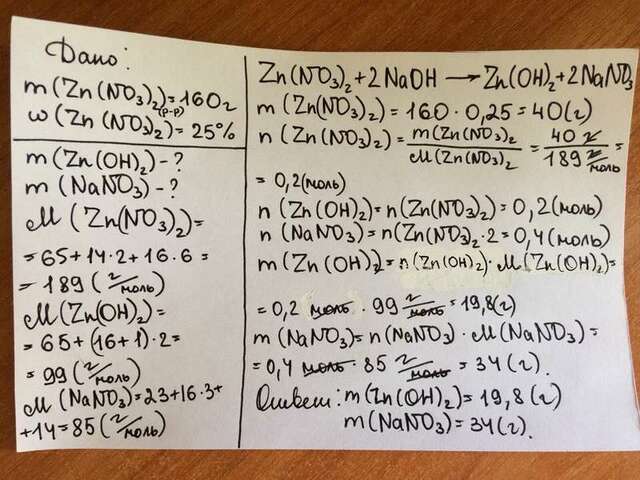 Дано:
m(Zn(NO₃)₂)(р-р)=160г
ω(Zn(NO₃)₂)=25%
m(Zn(OH)₂)-?
m(NaNO₃)-?
M(Zn(NO₃)₂)=
=65+14·2+16·6=
=189(г/моль)
M(Zn(OH)₂)=
=65+(16+1)·2=
=99(г/моль)
M(NaNO₃)=23+16·3+
+14=85(г/моль)
Zn(NO₃)₂+2NaOH→Zn(OH)₂+2NaNO₃
m(Zn(NO₃)₂)=160·0,25=40(г)
n(Zn(NO₃)₂)=m(Zn(NO₃)₂/M(Zn(NO₃)₂=40г/189г/моль=
=0,2(моль)
n(Zn(OH)₂)=n(Zn(NO₃)₂)=0,2(моль)
n(NaNO₃)=n(Zn(NO₃)₂·2=0,4(моль)
m(Zn(OH)₂)=n(Zn(OH)₂)·M(Zn(OH)₂)=
=0,2моль·99г/моль=19,8(г)
m(NaNO₃)=n(NaNO₃)·M(NaNO₃)=
=0,4моль·85г/моль=34(г).
Ответ:m(Zn(OH)₂)=19,8(г)
m(NaNO₃)=34(г).